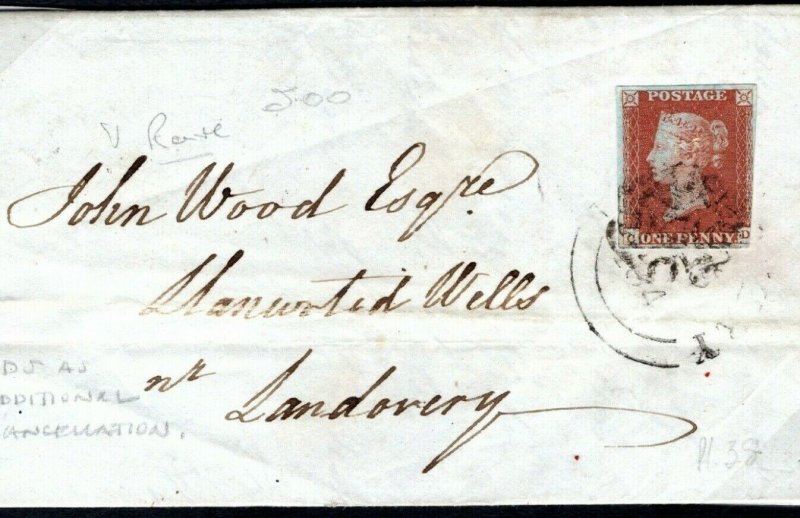 500
V Rare
POSTAGE
John Wood Esqre
ONE PENNY D
Llanwrted Wells
nr Landovery
DS AS
DDITIONAL
ANCELLATION.
Pl. 38